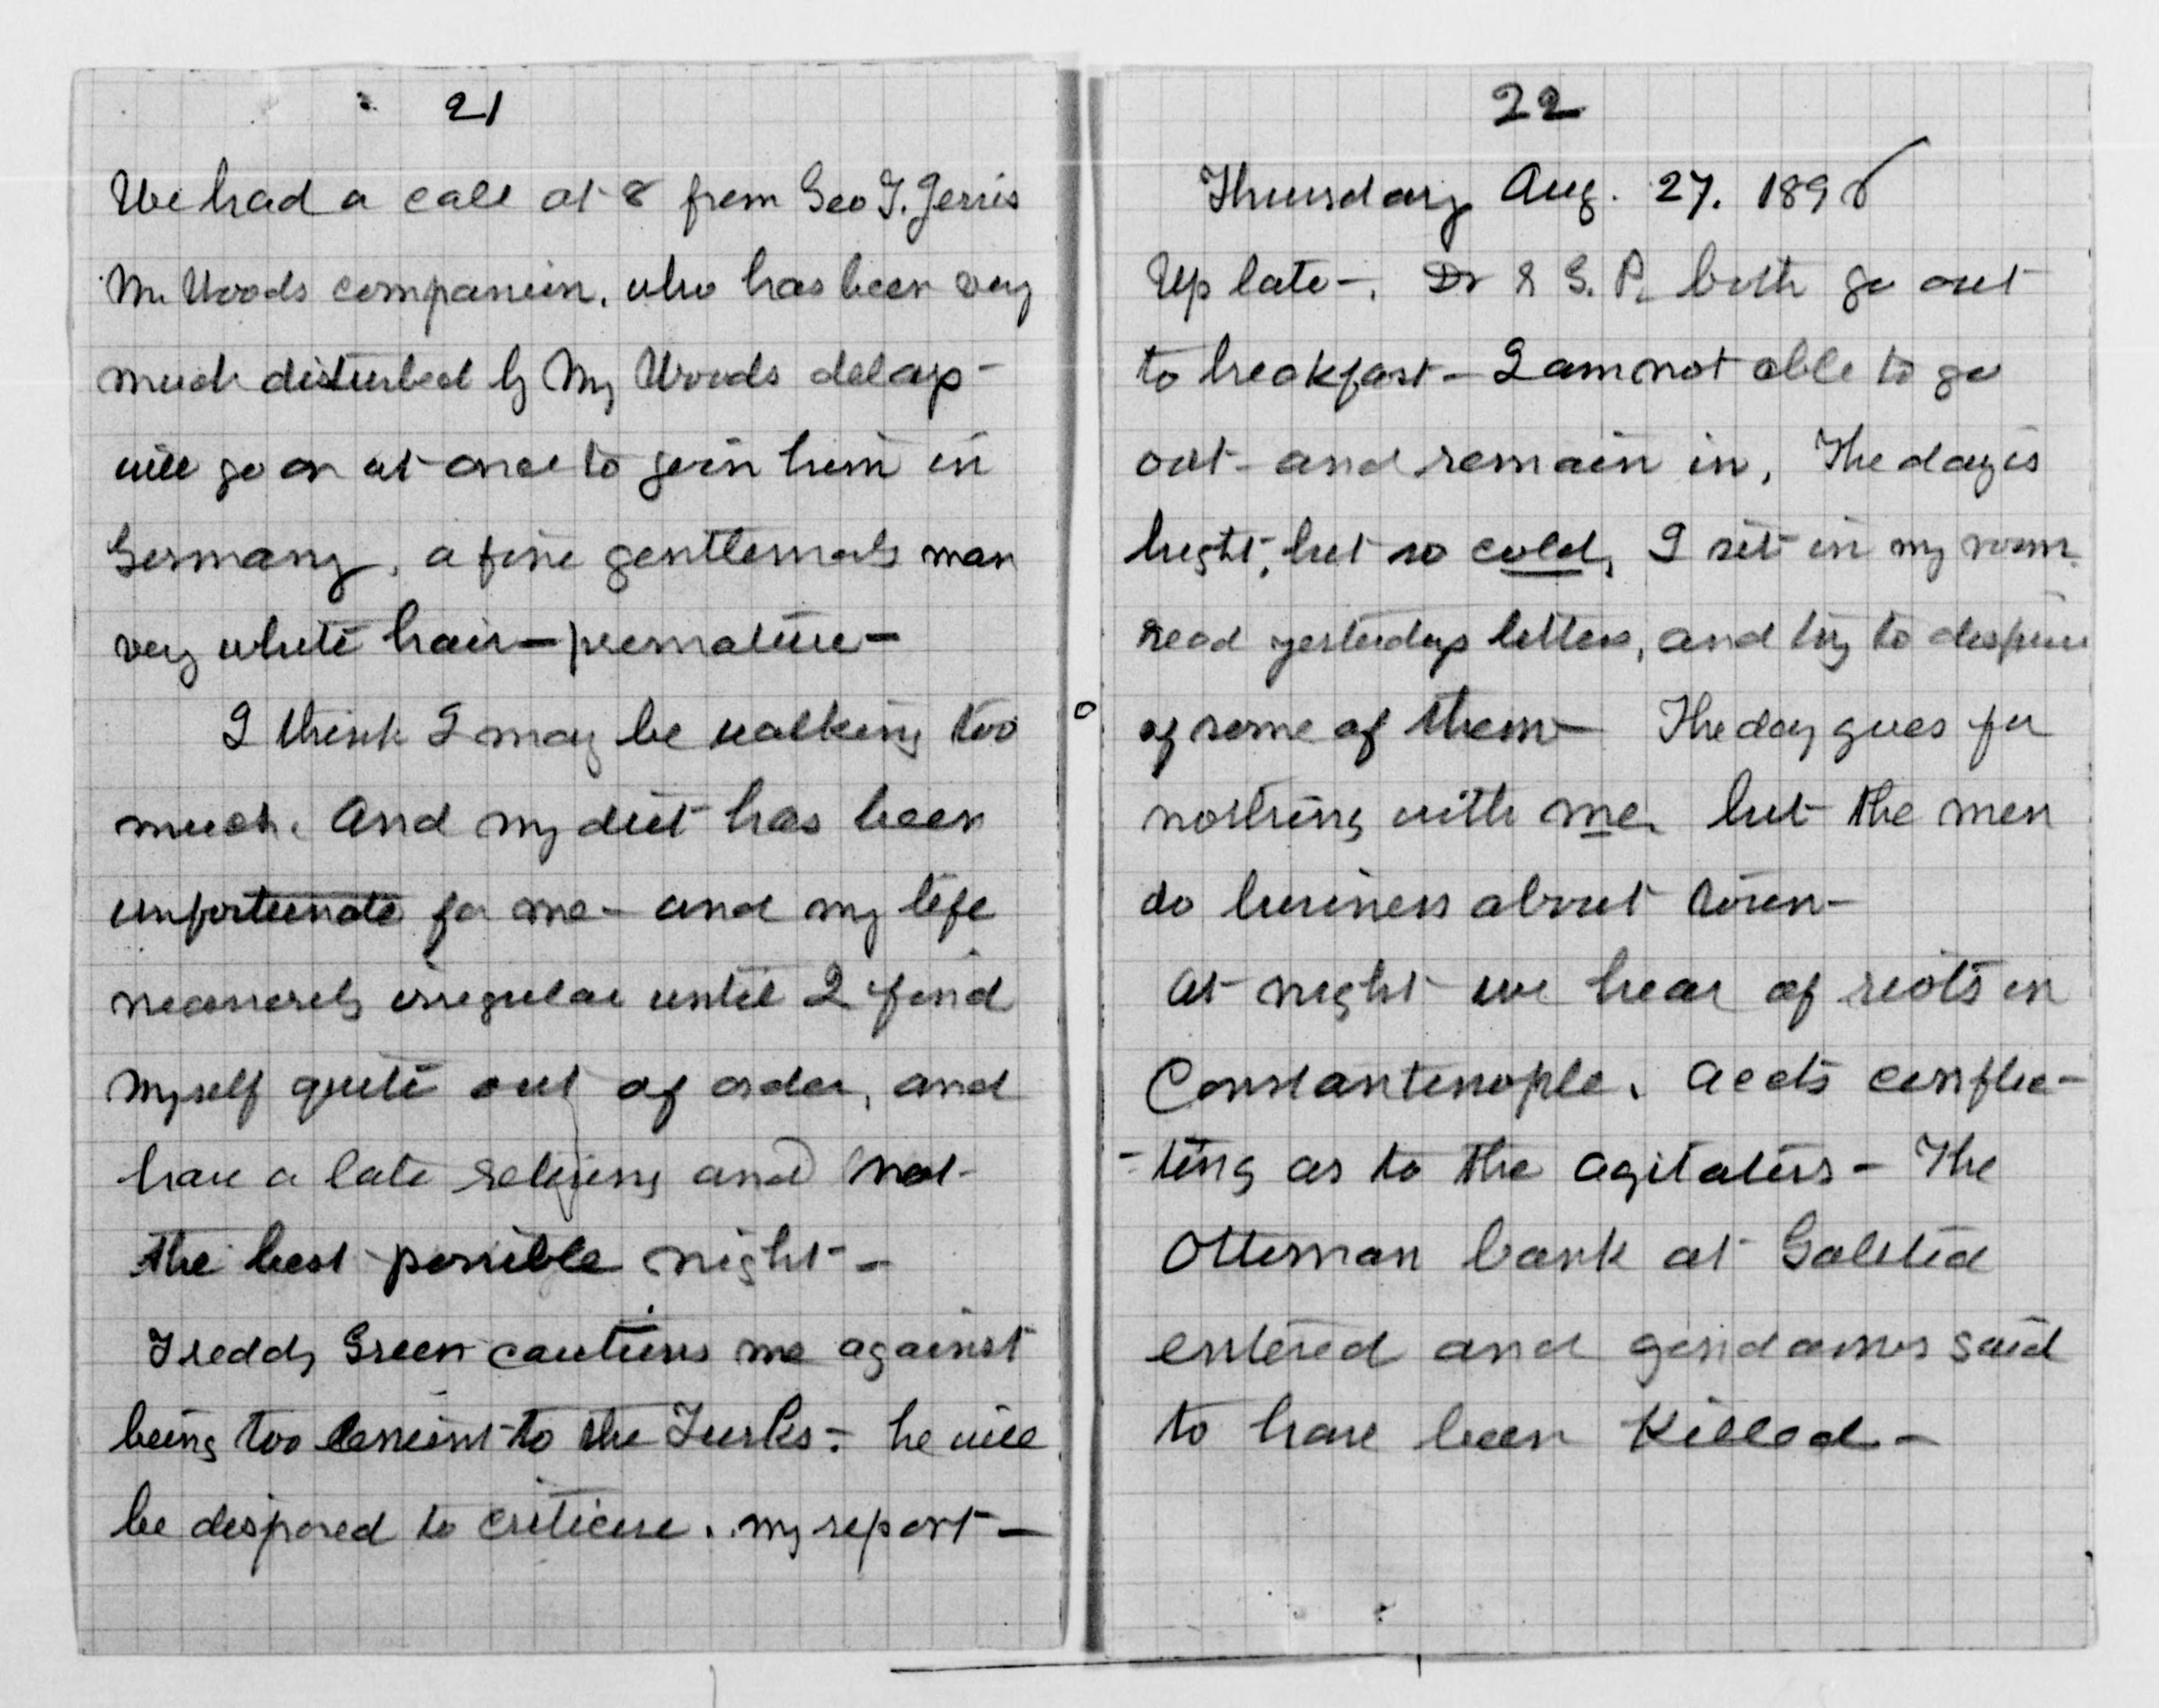 21
We had a call at 8 from Geo F. Jerris
Mr Woods companion, who has been very
much disturbed by Mr Woods delays -
will go on at once to join him in
Germany, a fine gentlemanly man
very white hair - premature -
I think I may be walking too
much. And my diet has been
unfortunate for me - and my life
necessarily irregular until I find
myself quite out of order, and
have a late retiring and not
the best possible night -
Freddy Green cautions me against
being too lenient to the Turks - he will
be disposed to criticise my report -
22
Thursday Aug. 27. 1896
Up late -. Dr & G. P. both go out
to breakfast - I am not able to go
out - and remain in, The day is
bright, but so cold, I sit in my room
read yesterdays letters, and try to dispose
of some of them - The day goes for
nothing with me. but the men
do business about town -
At night we hear of riots in
Constantinople. accts conflic-
-ting as to the agitators - The
Ottoman bank at Galata
entered and gendarmes said
to have been killed -